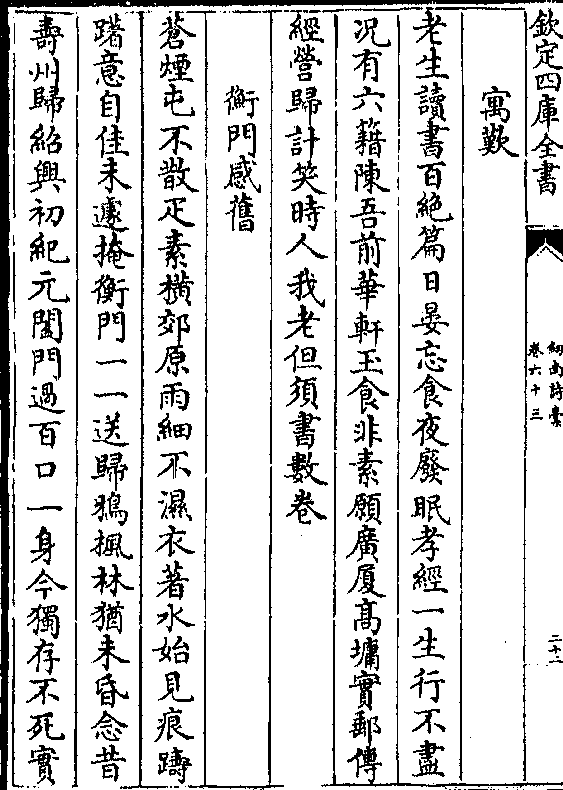 欽定四庫全書
劎南詩藁
卷六十三
二十二
寓歎
老生讀書百絶篇日晏忘食夜廢眠孝經一生行不盡
况有六籍陳吾前華軒玉食非素願廣厦髙墉實郵傳
經營歸計笑時人我老但須書數卷
衡門感舊
蒼煙屯不散疋素横郊原雨細不濕衣著水始見痕躊
躇意自佳未遽掩衡門一一送歸鴉楓林猶未昏念昔
壽州歸紹興初紀元闔門過百口一身今獨存不死實